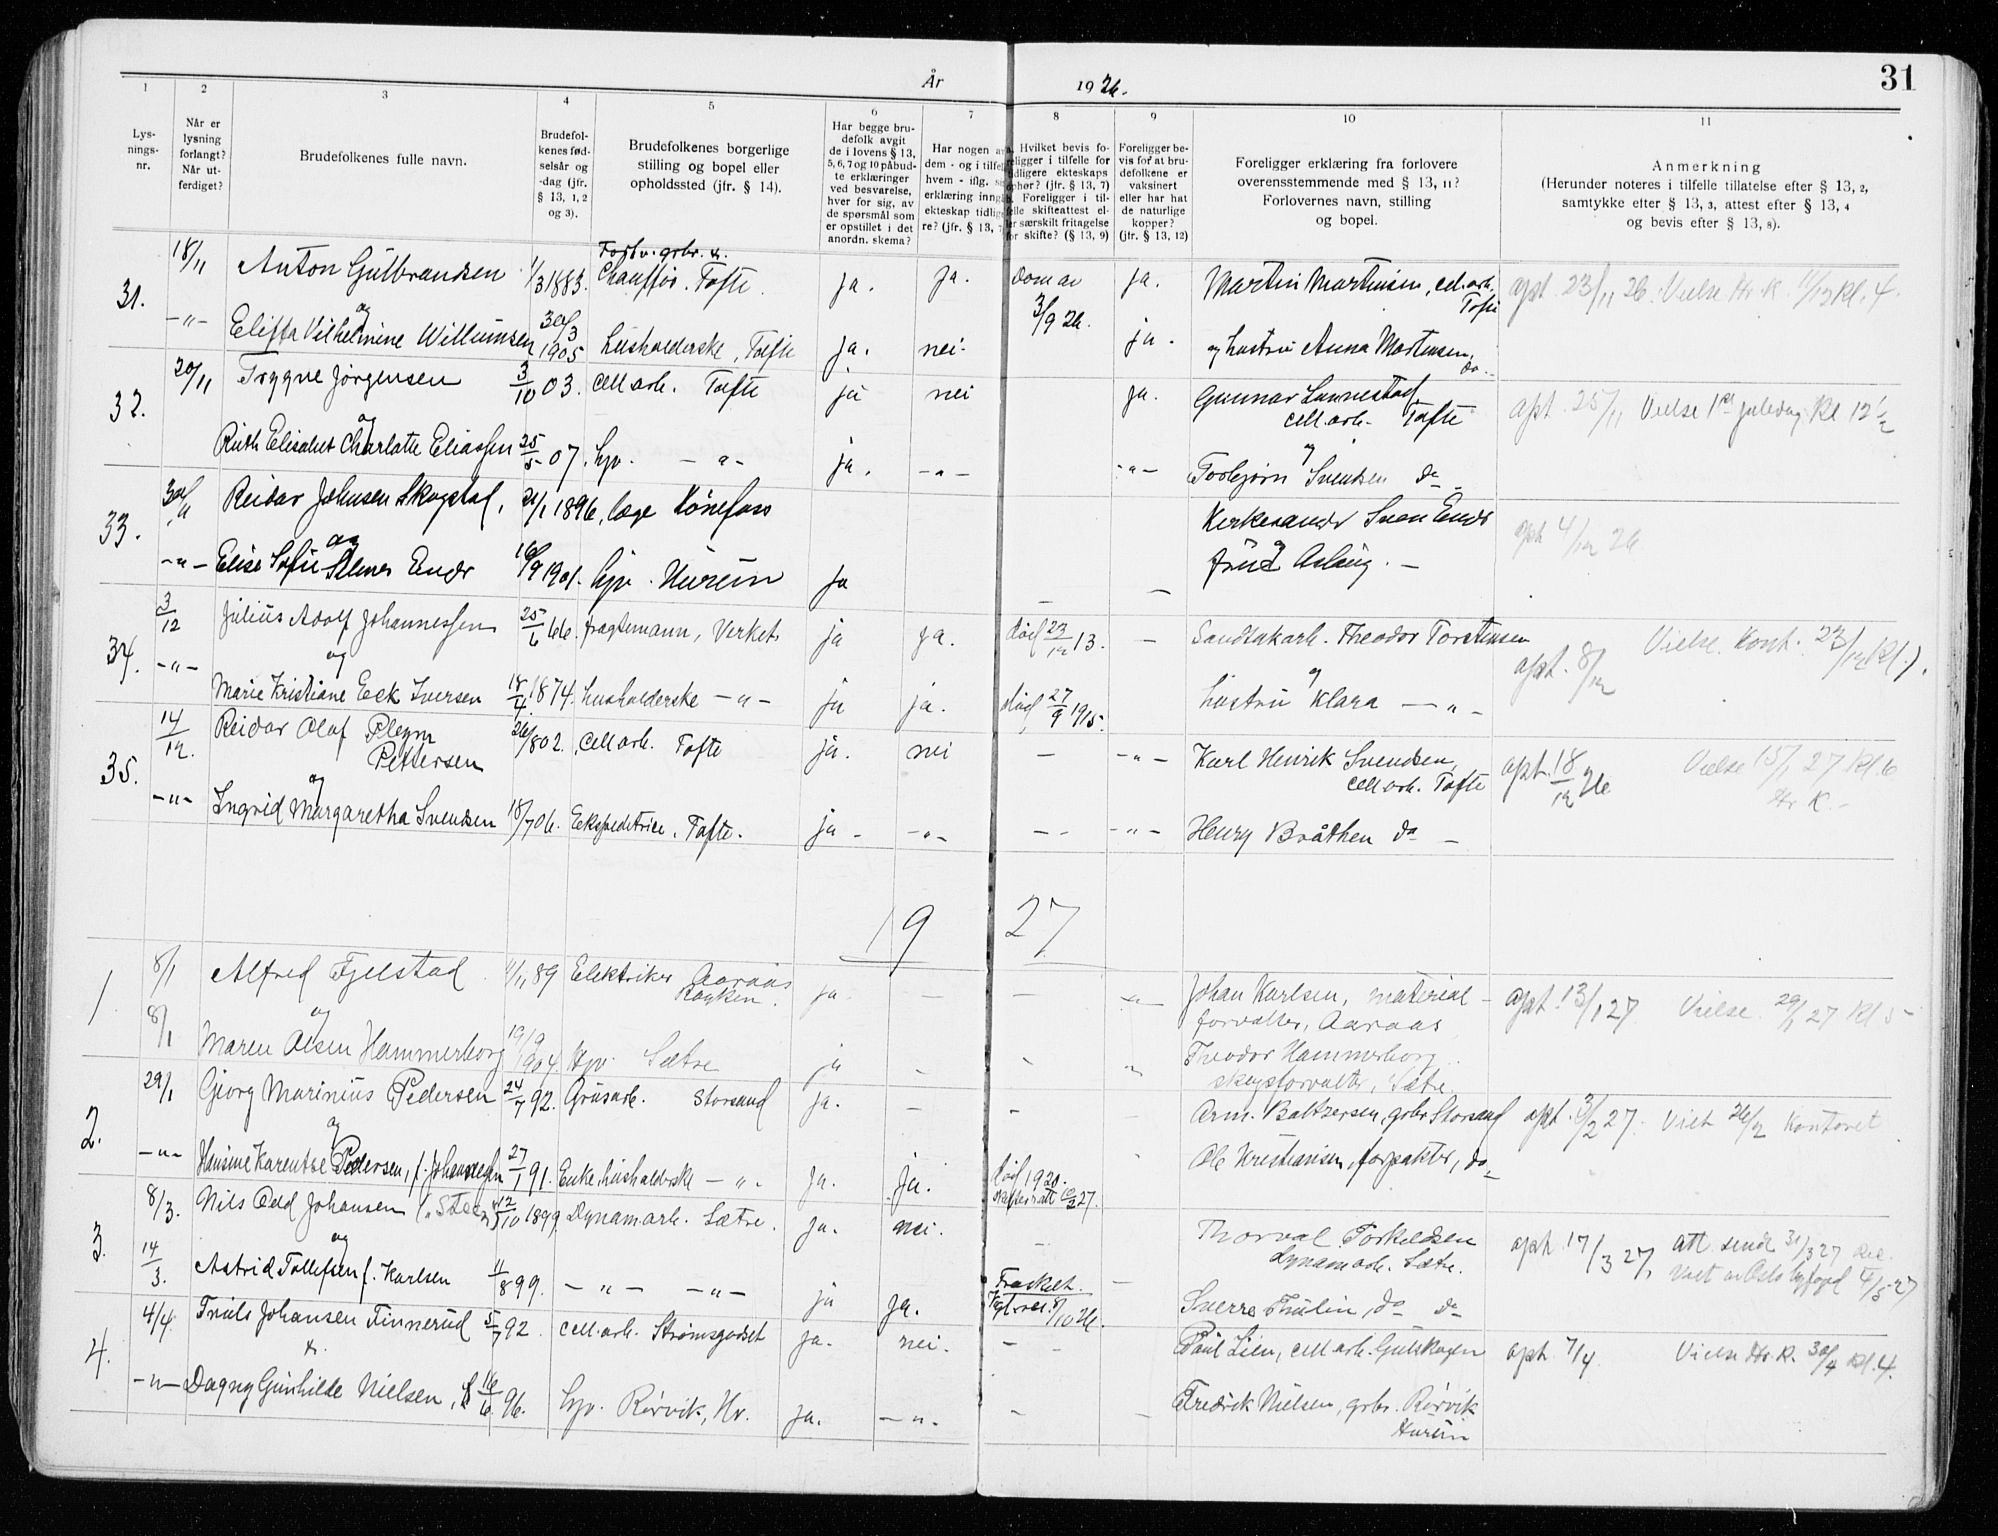 År 1926.
31
1 2 3 4 5 6 7 8 9 10 11
Lysningsnr.
Når er lysning forlangt? Når utferdiget?
Brudefolkenes fulle navn.
Brudefolkenes fødselsår og -dag (jfr. § 13, 1, 2 og 3).
Brudefolkenes borgerlige stilling og bopel eller opholdssted (jfr. § 14).
Har begge brudefolk avgit de i lovens § 13, 5, 6, 7 og 10 påbudte erklæringer ved besvarelse, hver for sig, av de spørsmål som er opstillet i det anordn. skema?
Har nogen av dem - og i tilfelle hvem - iflg. erklæring inngå ekteskap tidligere? (jfr. § 13, 7
Hvilket bevis foreligger i tilfelle for tidligere ekteskaps ophør? (jfr. § 13, 7) Foreligger i tilfelle skifteattest eller særskilt fritagelse for skifte? (§ 13, 9)
Foreligger bevis for at brudefolkene er vaksinert eller har hat de naturlige kopper? (jfr. § 13, 12)
Foreligger erklæring fra forlovere overensstemmende med § 13, 11? Forlovernes navn, stilling og bopel.
Anmerkning (Herunder noteres i tilfelle tillatelse efter § 13, 2, samtykke efter § 13, 3, attest efter § 13, 4 og bevis efter § 13, 8).
31. 18/11 Anton Gulbrandsen 1/3 1883. Chauffør. Tofte. ja. ja. Dom av 3/9 26. ja. Martin Martinsen, cell.arb. Tofte opt. 23/11 26. Vielse Hr. K. 11/12 Kl. 4.
og
-"- Vilhelmine Willumsen 30/3 1905 husholderske, Tofte ja. nei. ja. og hustru Anna Martinsen, do.
32. 20/11 Trygve Jørgensen 3/10 03. cell.arb. Tofte ja nei ja. Gunnar Lunnestad, cell.arb. Tofte opt. 25/11 Vielse 1ste juledag Kl 12 1/2
og
Ruth Elisabet Charlotte Eliassen 25/5 07. hjv. -"- ja. -"- -"- og Torbjørn Svendsen do -
33. 30/11 Reidar Johnsen Skogstad, 21/1 1896, læge Hønefoss Kirkesanger Sven Enger opt 4/12 26
og
-"- Elise Sofie Enger 16/9 1901. hjv. Hurum ja - - frue Aslaug. -
34. 3/12 Julius Adolf Johannessen 25/6 66. fragtemann, Verket ja ja. død 23/12 13. - Theodor Torstensen opt. 8/12 Vielse Kont. 23/12 Kl.
og
-"- Marie Kristiane Eek Iversen 18/4 1874. husholderske -"- ja ja. død 27/9 1915. og hustru Klara -"-
35. 14/12 Reidar Olaf Pleym Pettersen 26/8 02. cell.arb. Tofte ja. nei - -"- Karl Henrik Svendsen, cell.arb. Tofte opt. 18/12 26 Vielse 15/1 27 Kl. 6 Hr K. -
og
-"- Ingrid Margaretha Svendsen 18/7 06. Ekspeditrice. Tofte. ja - -"- -- -"- Henry Bråthen do -
1927
1 8/1 Alfred Fjelstad 11/11 89 Elektriker Aaraas Røyken. ja - - -"- Johan Karlsen, materialforvalter, Aaraas opt. 13/1 27 Vielse. 29/1 27 Kl 5
og
8/1 Maren Olsen Hammerborg 19/9 1904 Hjv. Sætre ja - - " Theodor Hammerborg skogsforvalter, Sætre
2. 29/1 Georg Marinius Pedersen 24/7 92. Grusarb. Storsand ja. - - Arn. Baltzersen, grbr. Storsand opt. 3/2 27. Viet 26/2 Kontoret
og
-"- Hansine Karentse Pedersen, f. Johannessen 27/1 91. Enke, husholderske -"- ja. ja. død 1920. Skifteratt 10/2 27. Ole Kristiansen, forpakter, do -
3. 8/3. Nils Odd Johansen ("Steen") 12/10 1899 Dynam.arb. Sætre. ja. nei. - Thorval Torkildsen Dynam.arb. Sætre. opt. 17/3 27, Att. sendt 31/3 27 Viet av Oslo byfogd 4/5 27
og
14/3. Astrid Tollefsen f. Karlsen 11/8 99. -"- -"- ja ja. Fraskilt. 8/10 26. - Sverre Thulin, do do
4. 4/4 Truls Johansen Finnerud 5/7 92 cell.arb. Strømsgodset ja. nei. - - Paul Lien, cell.arb. Gulskogen opt. 7/4 Vielse Hr. K. 30/4 Kl. 4.
&
-"- Dagny Gunhilde Nielsen, 16/6 96. hjv. Rørvik, Hr. ja. -"- - - Fredrik Nielsen, grbr. Rørvik Hurum